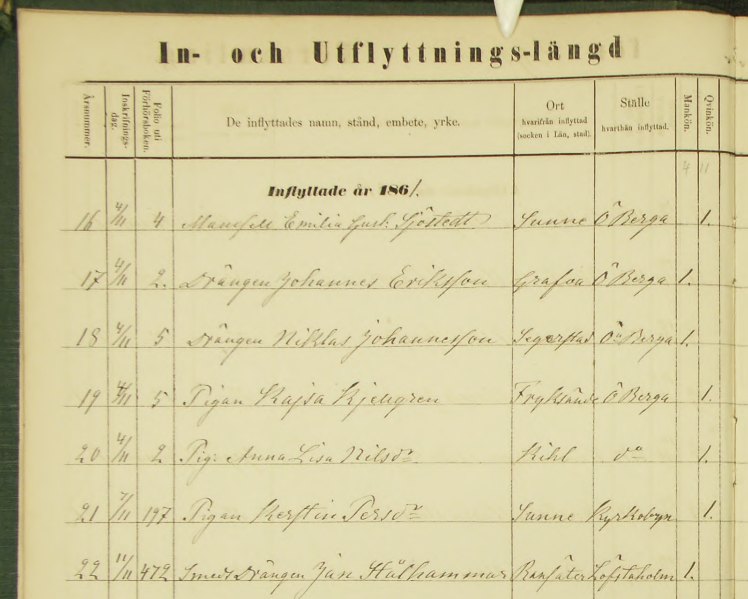 In- och Utflyttnings-längd
Årsnummer. Inskrifnings-dag. Folio uti Förhörsboken. De inflyttades namn, stånd, embete, yrke. Ort hvarifrån inflyttad (socken i Län, stad). Ställe hvarthän inflyttad. Mankön. Qvinkön.
4 11
Inflyttade år 1861.
16 4/11 4 Emilia Gust. Sjöstedt Sunne Ö Berga 1.
17 4/11 2. Drängen Johannes Eriksson Grafva Ö Berga 1.
18 4/11 5 Drängen Niklas Johannesson Segerstad Ö Berga 1.
19 4/11 5 Pigan Kajsa Kjellgren Fryksände Ö Berga 1.
20 4/11 2 Pig: Anna Lisa Nilsdr Kihl do 1.
21 7/11 197 Pigan Kerstin Persdr Sunne Kyrkobyn 1.
22 11/11 472 Smeds Drängen Jan Stålhammar Ransäter Löfstaholm 1.